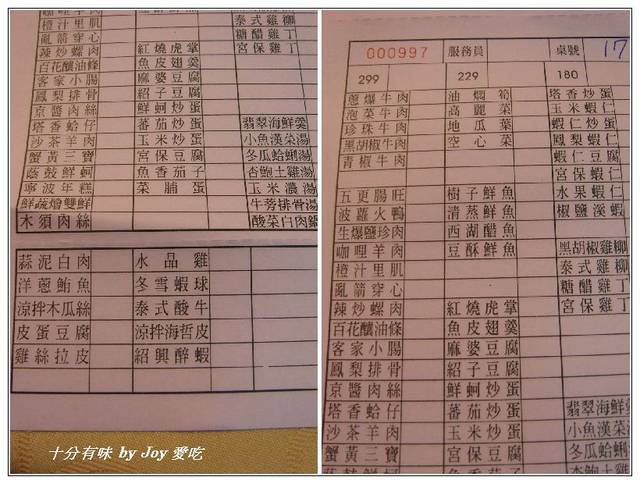 咖哩羊肉 泰式雞柳
橙汁里肌 糖醋雞丁
亂箭穿心 宮保雞丁
辣炒螺肉 紅燒虎掌
百花釀油條 魚皮翅羹
客家小腸 麻婆豆腐
鳳梨排骨 紹子豆腐
京醬肉絲 鮮蚵炒蛋
塔香蛤仔 蕃茄炒蛋 翡翠海鮮羹
沙茶羊肉 玉米炒蛋 小魚漢菜湯
蟹黃三寶 宮保豆腐 冬瓜蛤蜊湯
蔭鼓鮮蚵 魚香茄子 杏鮑土雞湯
寧波年糕 菜脯蛋 玉米濃湯
鮮蔬燴雙鮮 牛蒡排骨湯
木須肉絲 酸菜白肉鍋
蒜泥白肉 水晶雞
洋蔥鮪魚 冬雪蝦球
涼拌木瓜絲 泰式酸牛
皮蛋豆腐 涼拌海哲皮
雞絲拉皮 紹興醉蝦
十分有味 by Joy 愛吃
000997 服務員 桌號 17
299 229 180
蔥爆牛肉 油燜筍 塔香炒蛋
泡菜牛肉 高麗菜 玉米蝦仁
珍珠牛肉 地瓜葉 蝦仁炒蛋
黑胡椒牛肉 空心菜 鳳梨蝦仁
青椒牛肉 蝦仁豆腐
宮保蝦仁
五更腸旺 樹子鮮魚 水果蝦仁
波蘿火鴨 清蒸鮮魚 椒鹽溪蝦
生爆鹽珍肉 西湖醋魚
咖哩羊肉 豆酥鮮魚 黑胡椒雞柳
橙汁里肌 泰式雞柳
亂箭穿心 糖醋雞丁
辣炒螺肉 紅燒虎掌 宮保雞丁
百花釀油條 魚皮翅羹
客家小腸 麻婆豆腐
鳳梨排骨 紹子豆腐
京醬肉絲 鮮蚵炒蛋
塔香蛤仔 蕃茄炒蛋 翡翠海鮮
沙茶羊肉 玉米炒蛋 小魚漢菜湯
蟹黃三寶 宮保豆腐 冬瓜蛤蜊
蔭鼓鮮蚵 魚香茄子